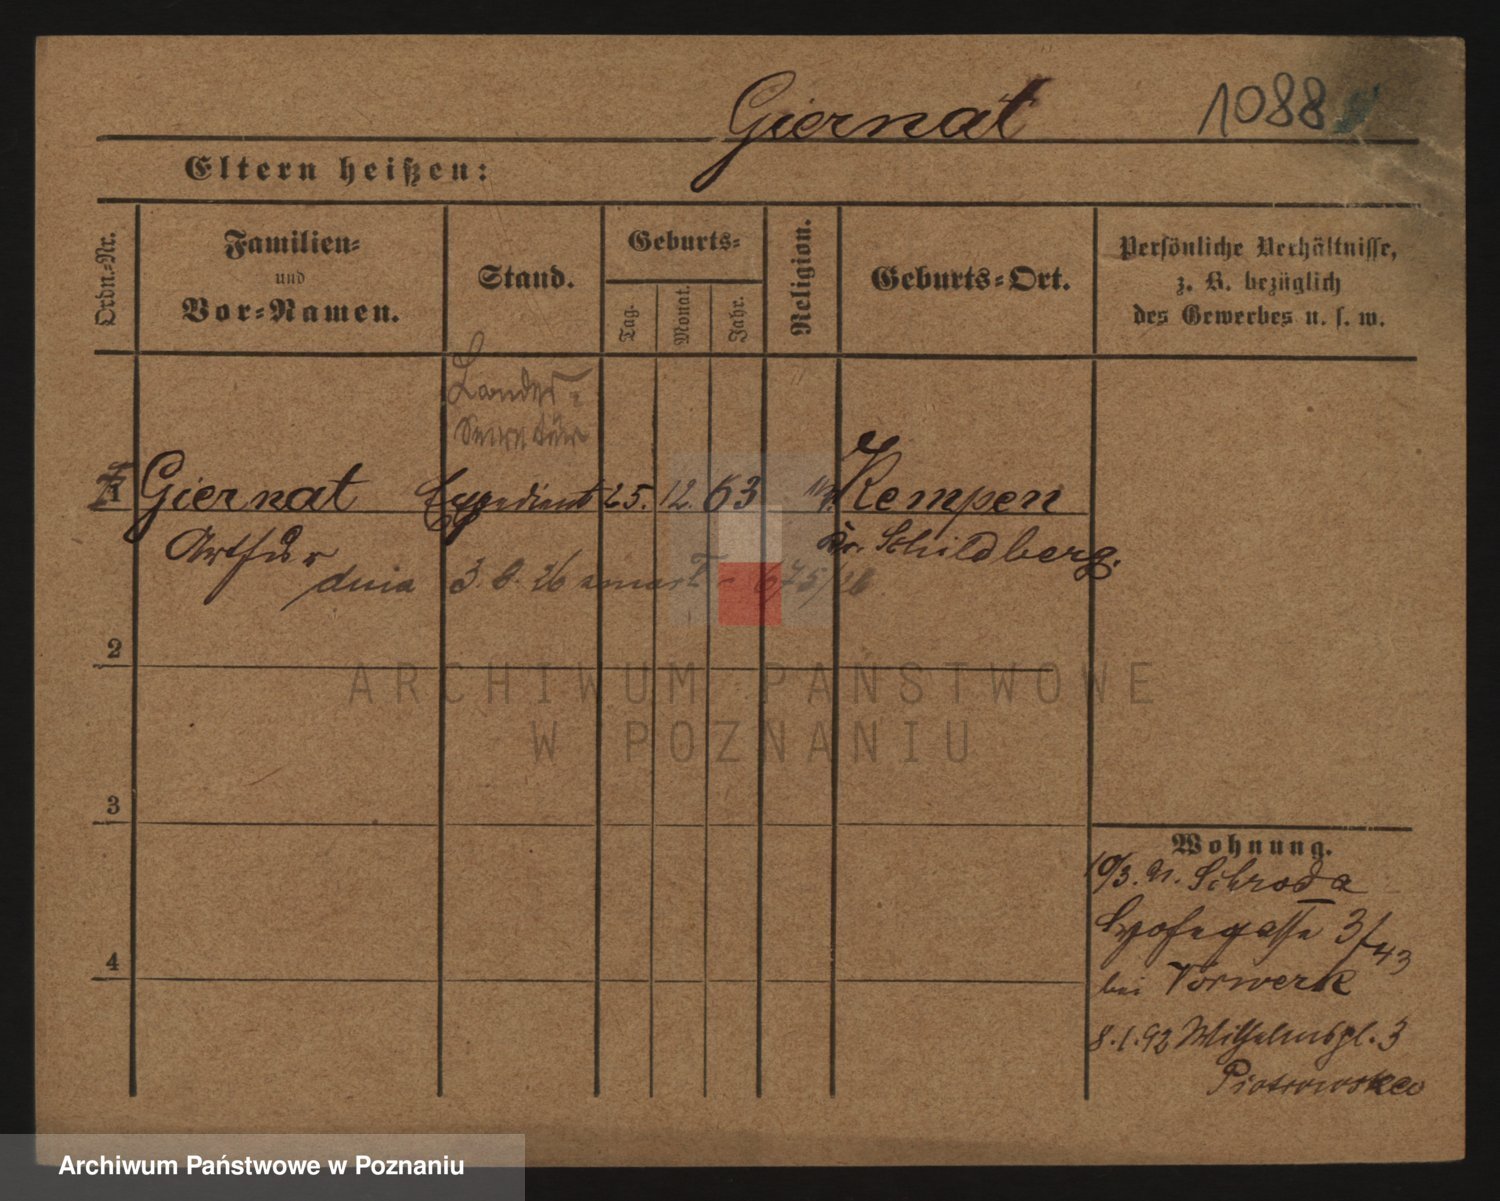 Giernat
1088
Eltern heißen:
Ordn.-Nr.
Familien-
und
Vor-Namen.
Stand.
Geburts-
Tag.
Monat.
Jahr.
Religion.
Geburts-Ort.
Persönliche Verhältnisse,
z. B. bezüglich
des Gewerbes u. s. w.
Landes-
Secretär
1 Giernat Expedient 25. 12. 63 Kempen
Arthur Kr. Schildberg.
dnia 3. 8. 26 zmarł 675/26
2
ARCHIWUM PAŃSTWOWE
W POZNANIU
3
Wohnung.
10/3. n. Schroda
3/43
4
bei Vorwerk
8.1.92 Wilhelmspl. 3
Piotrowska
Archiwum Państwowe w Poznaniu